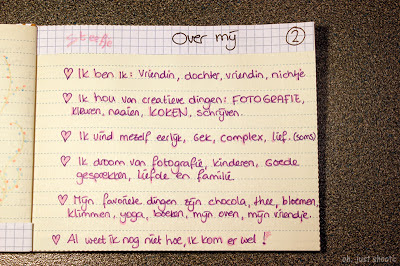 Steefje
Over mij
2
♡ Ik ben ik: vriendin, dochter, vriendin, nichtje
♡ Ik hou van creatieve dingen: FOTOGRAFIE,
kleuren, naaien, KOKEN, schrijven.
♡ Ik vind mezelf eerlijk, gek, complex, lief. (soms)
♡ Ik droom van fotografie, kinderen, goede
gesprekken, liefde en familie.
♡ Mijn favoriete dingen zijn chocola, thee, bloemen,
klimmen, yoga, boeken, mijn oven, mijn vriendje.
♡ Al weet ik nog niet hoe, ik kom er wel!
oh, just shoot!